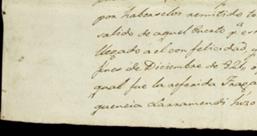 por haberselos remitido to
salido de aquel Puerto q e
llegado a el con felicidad, y
fines de Diciembre de 924, q
qual fue la referida Fraga
guencia Larramendi hizo